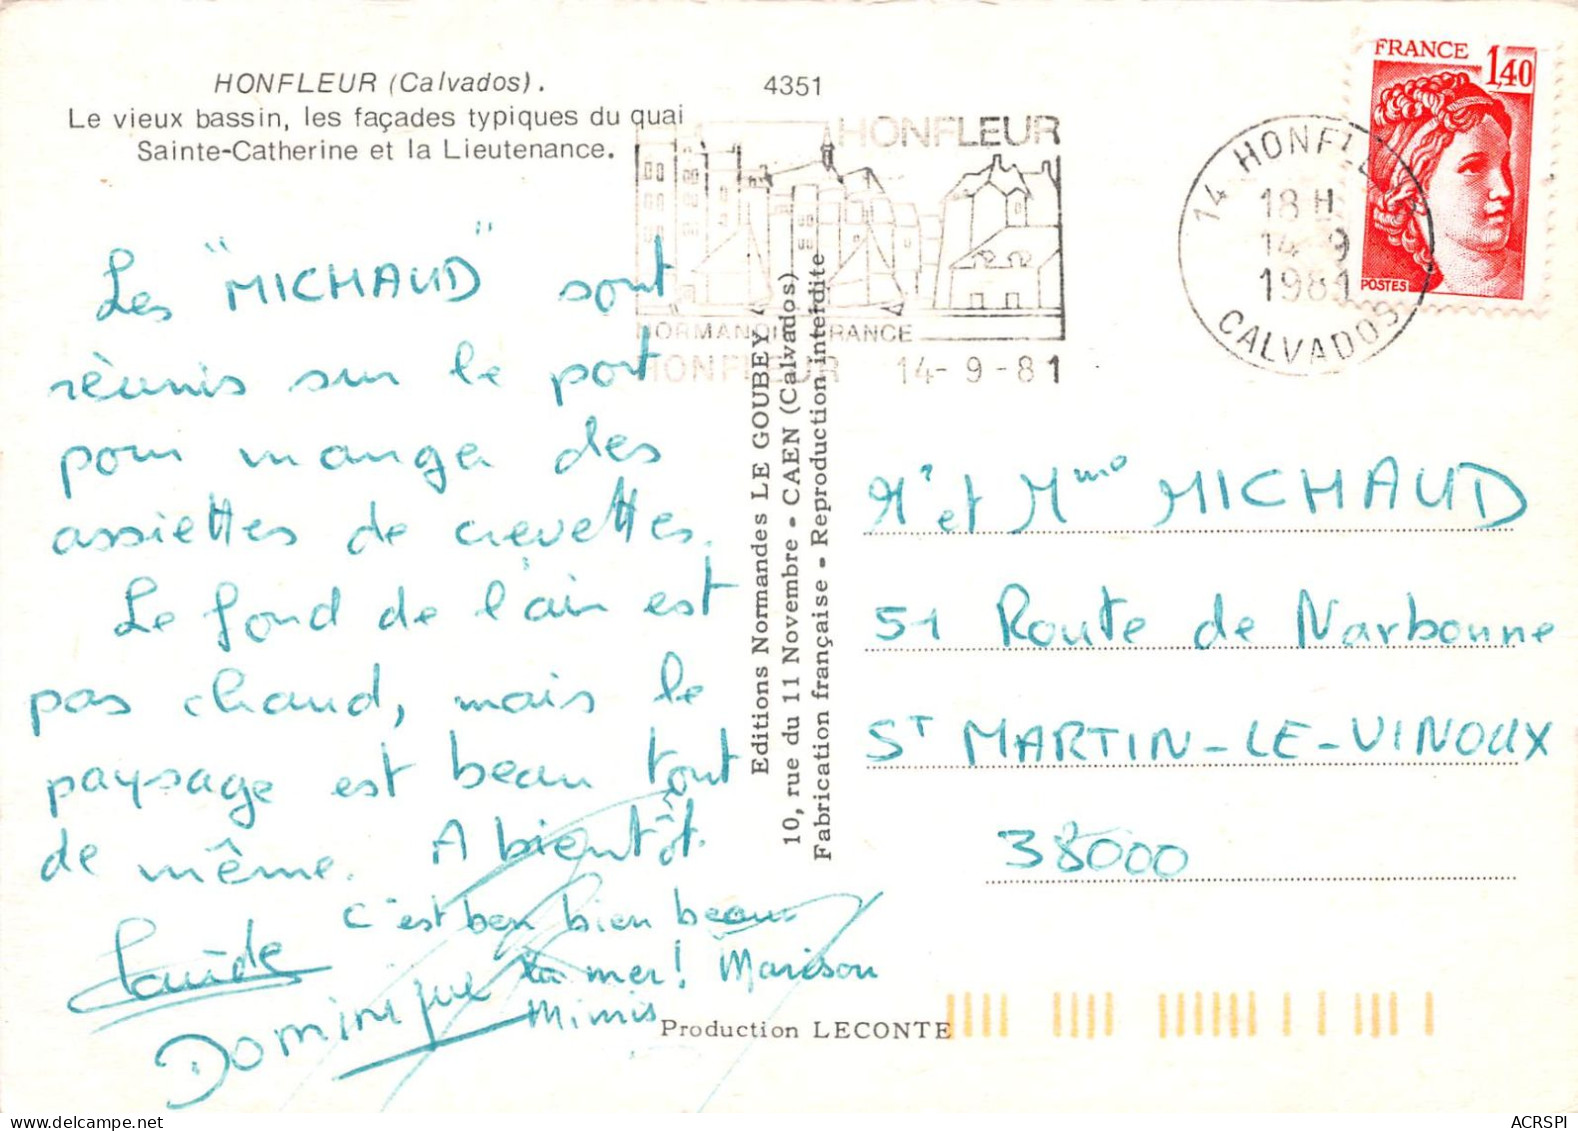 HONFLEUR (Calvados).
Le vieux bassin, les façades typiques du quai
Sainte-Catherine et la Lieutenance.
4351
HONFLEUR
NORMANDIE FRANCE
HONFLEUR 14-9-81
14 HONFLEUR
18H
14-9
1981
CALVADOS
FRANCE 1,40
POSTES
Les "MICHAUD" sont
réunis sur le port
pour manger des
assiettes de crevettes.
Le fond de l'air est
pas chaud, mais le
paysage est beau tout
de même. A bientôt.
c'est ben bien beau
la mer! Marison
Mimis
Claude
Dominique
Editions Normandes LE GOUBEY
10, rue du 11 Novembre - CAEN (Calvados)
Fabrication française - Reproduction interdite
Mr et Mme MICHAUD
51 Route de Narbonne
ST MARTIN-LE-VINOUX
38000
Production LECONTE
www.delcampe.net
ACRSPI